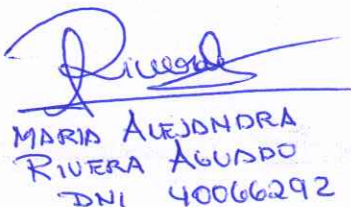 Rivera
MARIA ALEJANDRA
RIVERA AGUADO
DNI 40066292